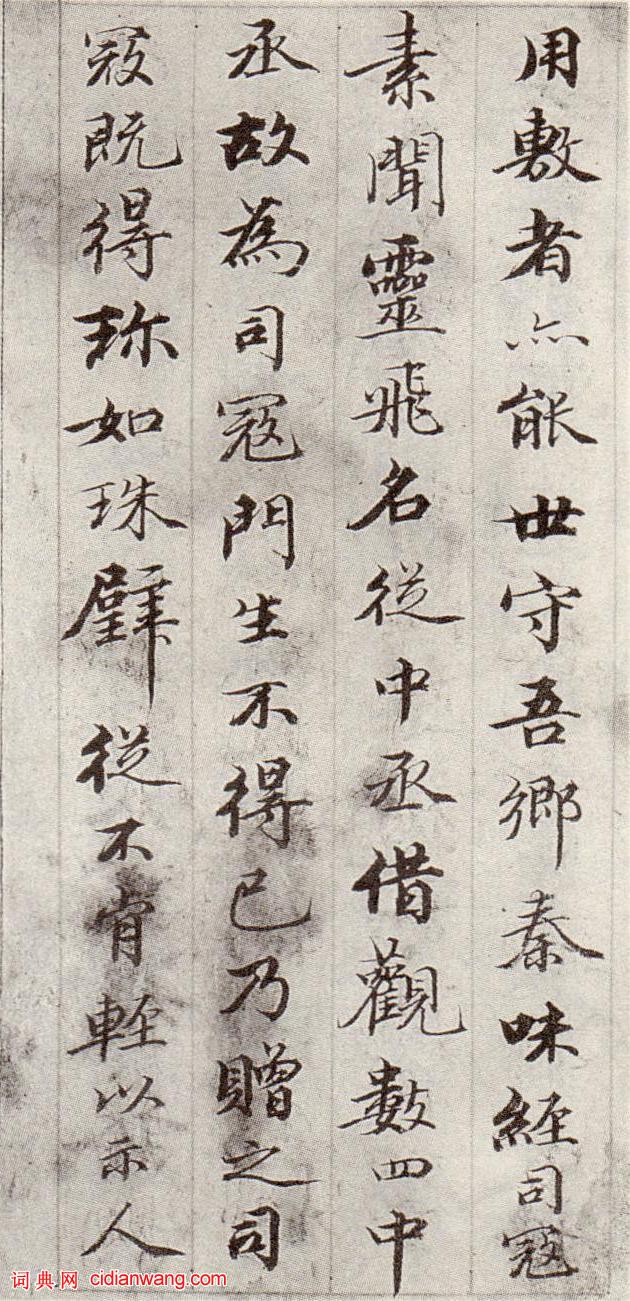 用敷者亦能世守吾鄉秦味經司寇
素聞靈飛名從中丞借觀數四中
丞故為司寇門生不得已乃贈之司
寇既得珎如珠璧從不肯輕以示人
词典网 cidianwang.com